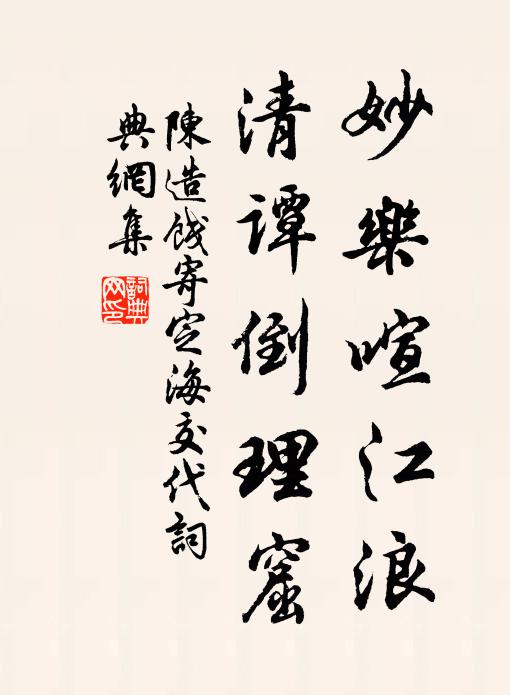 妙樂喧江浪
清譚倒理窟
陳造餞寄定海交代詞
典網集
詞典网印